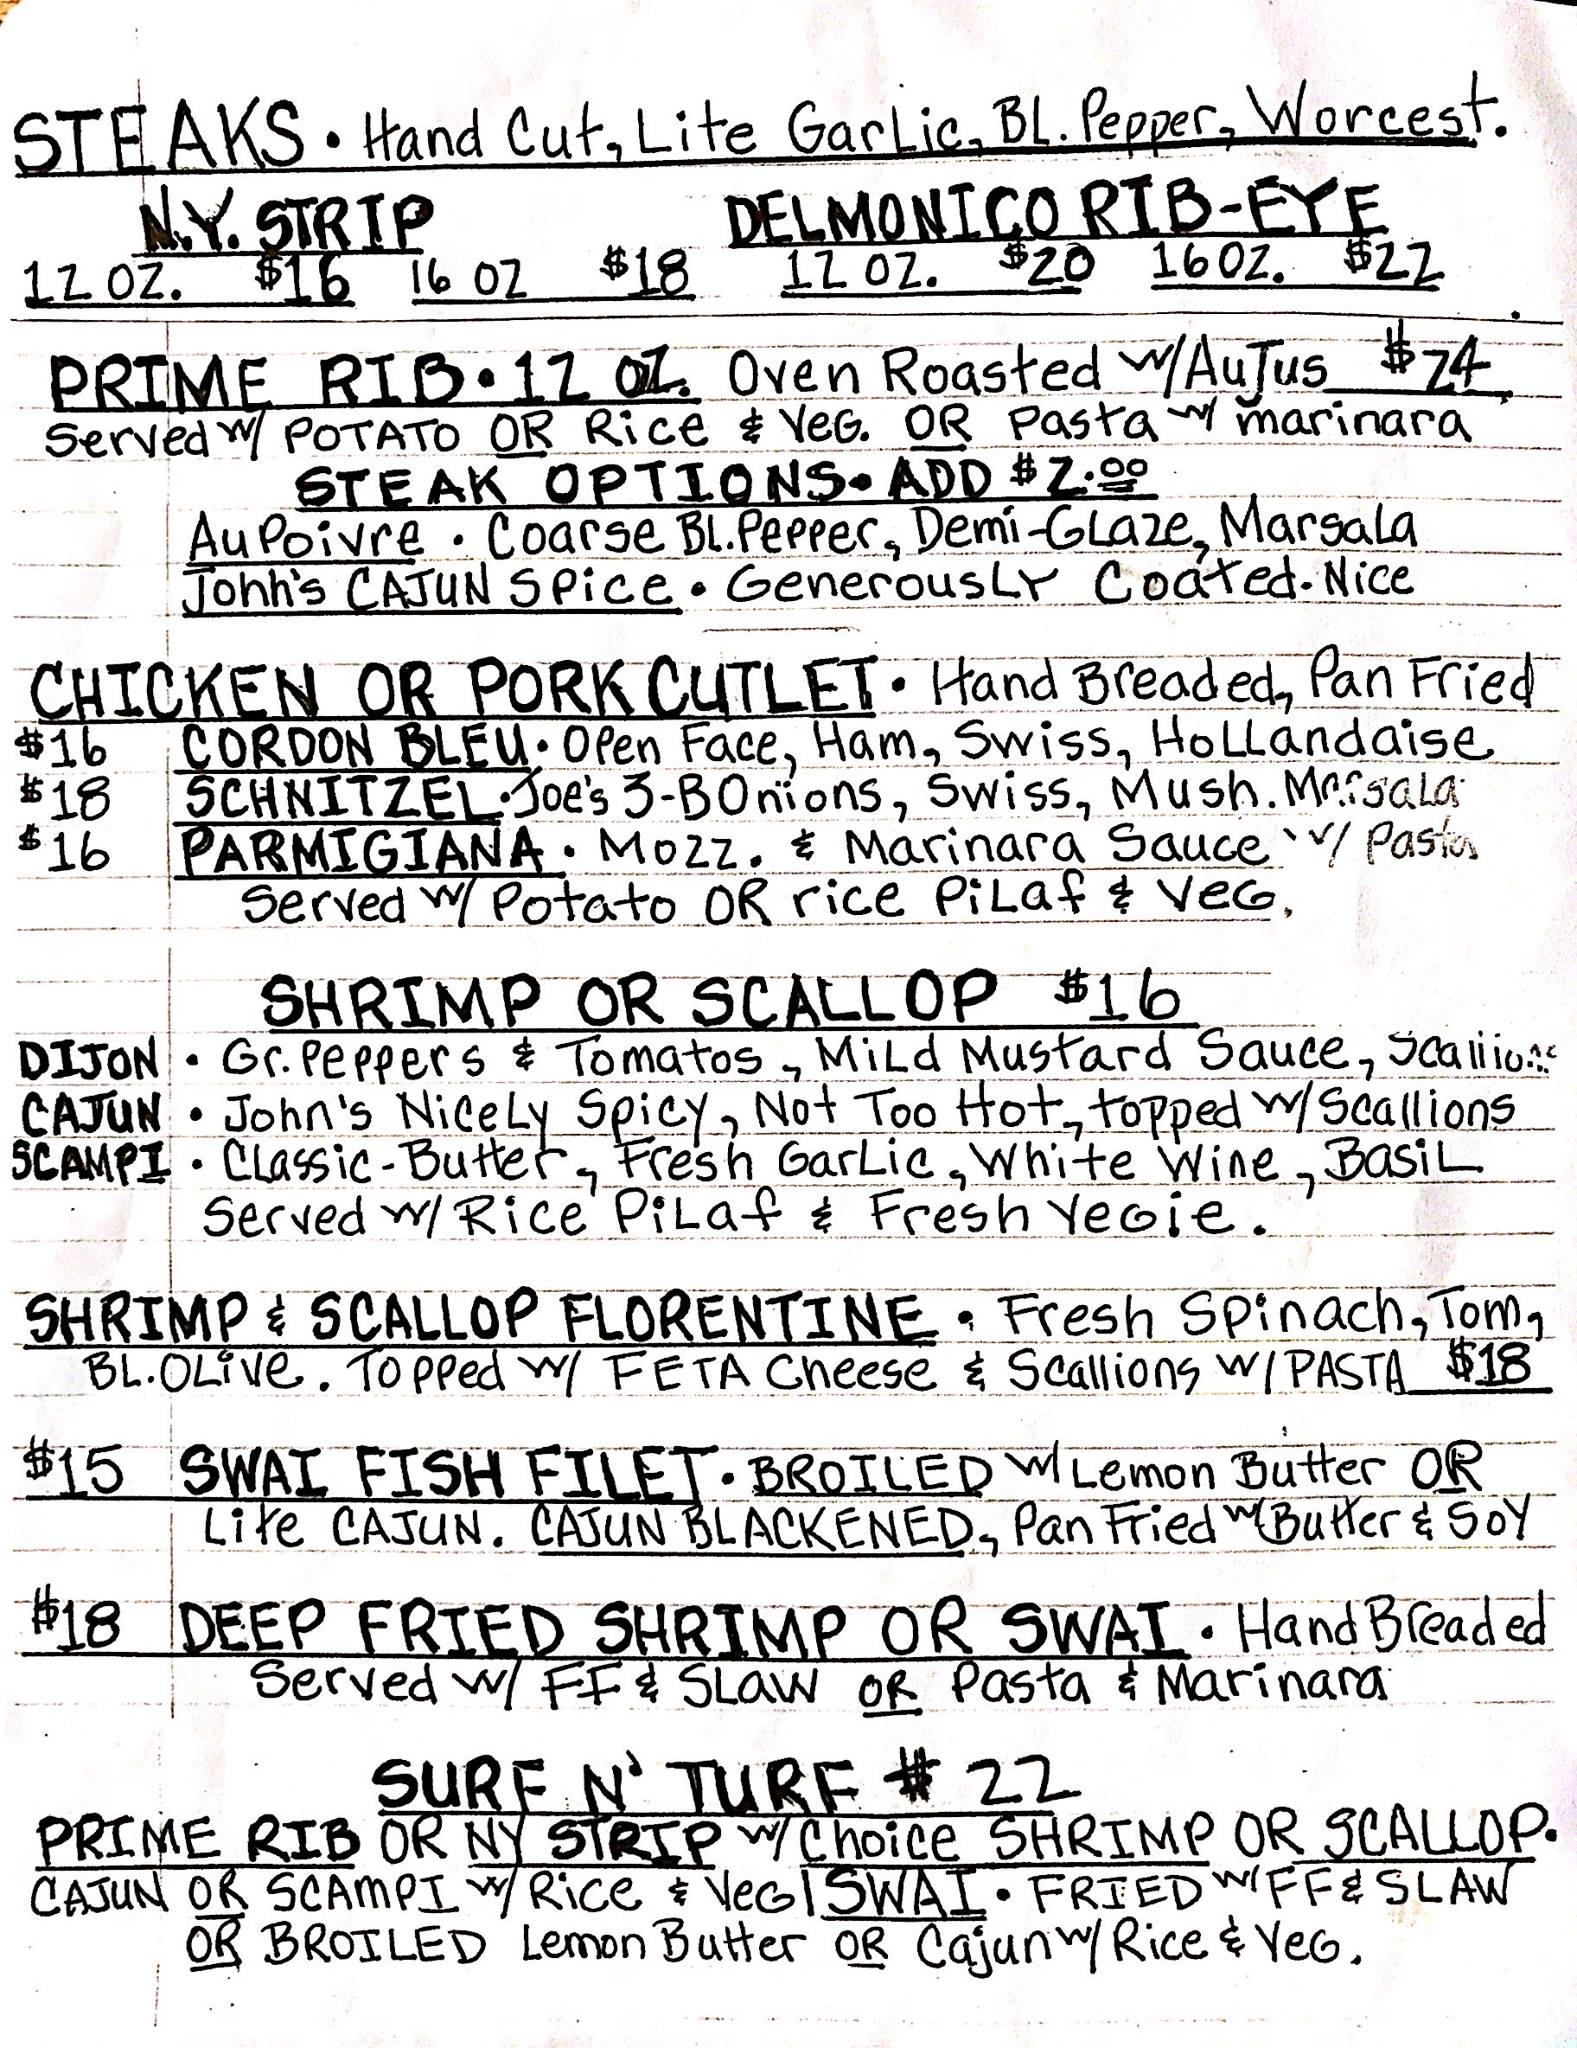 STEAKS • Hand Cut, Lite Garlic, BL. Pepper, Worcest.
N.Y. STRIP DELMONICO RIB-EYE
12 OZ. $16 16 OZ $18 12 OZ. $20 16 OZ. $22
PRIME RIB • 12 OZ. Oven Roasted w/ AuJus $24
Served w/ POTATO OR Rice & Veg. OR Pasta w/ marinara
STEAK OPTIONS • ADD $2.00
Au Poivre • Coarse BL. Pepper, Demi-Glaze, Marsala
John's CAJUN Spice • Generously Coated. Nice
CHICKEN OR PORK CUTLET • Hand Breaded, Pan Fried
$16 CORDON BLEU • Open Face, Ham, Swiss, Hollandaise
$18 SCHNITZEL • Joe's 3-B Onions, Swiss, Mush. Marsala
$16 PARMIGIANA • Mozz. & Marinara Sauce w/ Pasta
Served w/ Potato OR rice Pilaf & Veg.
SHRIMP OR SCALLOP $16
DIJON • Gr. Peppers & Tomatos, Mild Mustard Sauce, Scallions
CAJUN • John's Nicely Spicy, Not Too Hot, topped w/ Scallions
SCAMPI • Classic-Butter, Fresh Garlic, White Wine, Basil
Served w/ Rice Pilaf & Fresh Vegie.
SHRIMP & SCALLOP FLORENTINE • Fresh Spinach, Tom,
BL. Olive. Topped w/ FETA Cheese & Scallions w/ PASTA $18
$15 SWAI FISH FILET • BROILED w/ Lemon Butter OR
Lite CAJUN. CAJUN BLACKENED, Pan Fried w/ Butter & Soy
$18 DEEP FRIED SHRIMP OR SWAI • Hand Breaded
Served w/ FF & Slaw OR Pasta & Marinara
SURF N' TURF $22
PRIME RIB OR NY STRIP w/ Choice SHRIMP OR SCALLOP.
CAJUN OR SCAMPI w/ Rice & Veg | SWAI • FRIED w/ FF & SLAW
OR BROILED Lemon Butter OR Cajun w/ Rice & Veg.